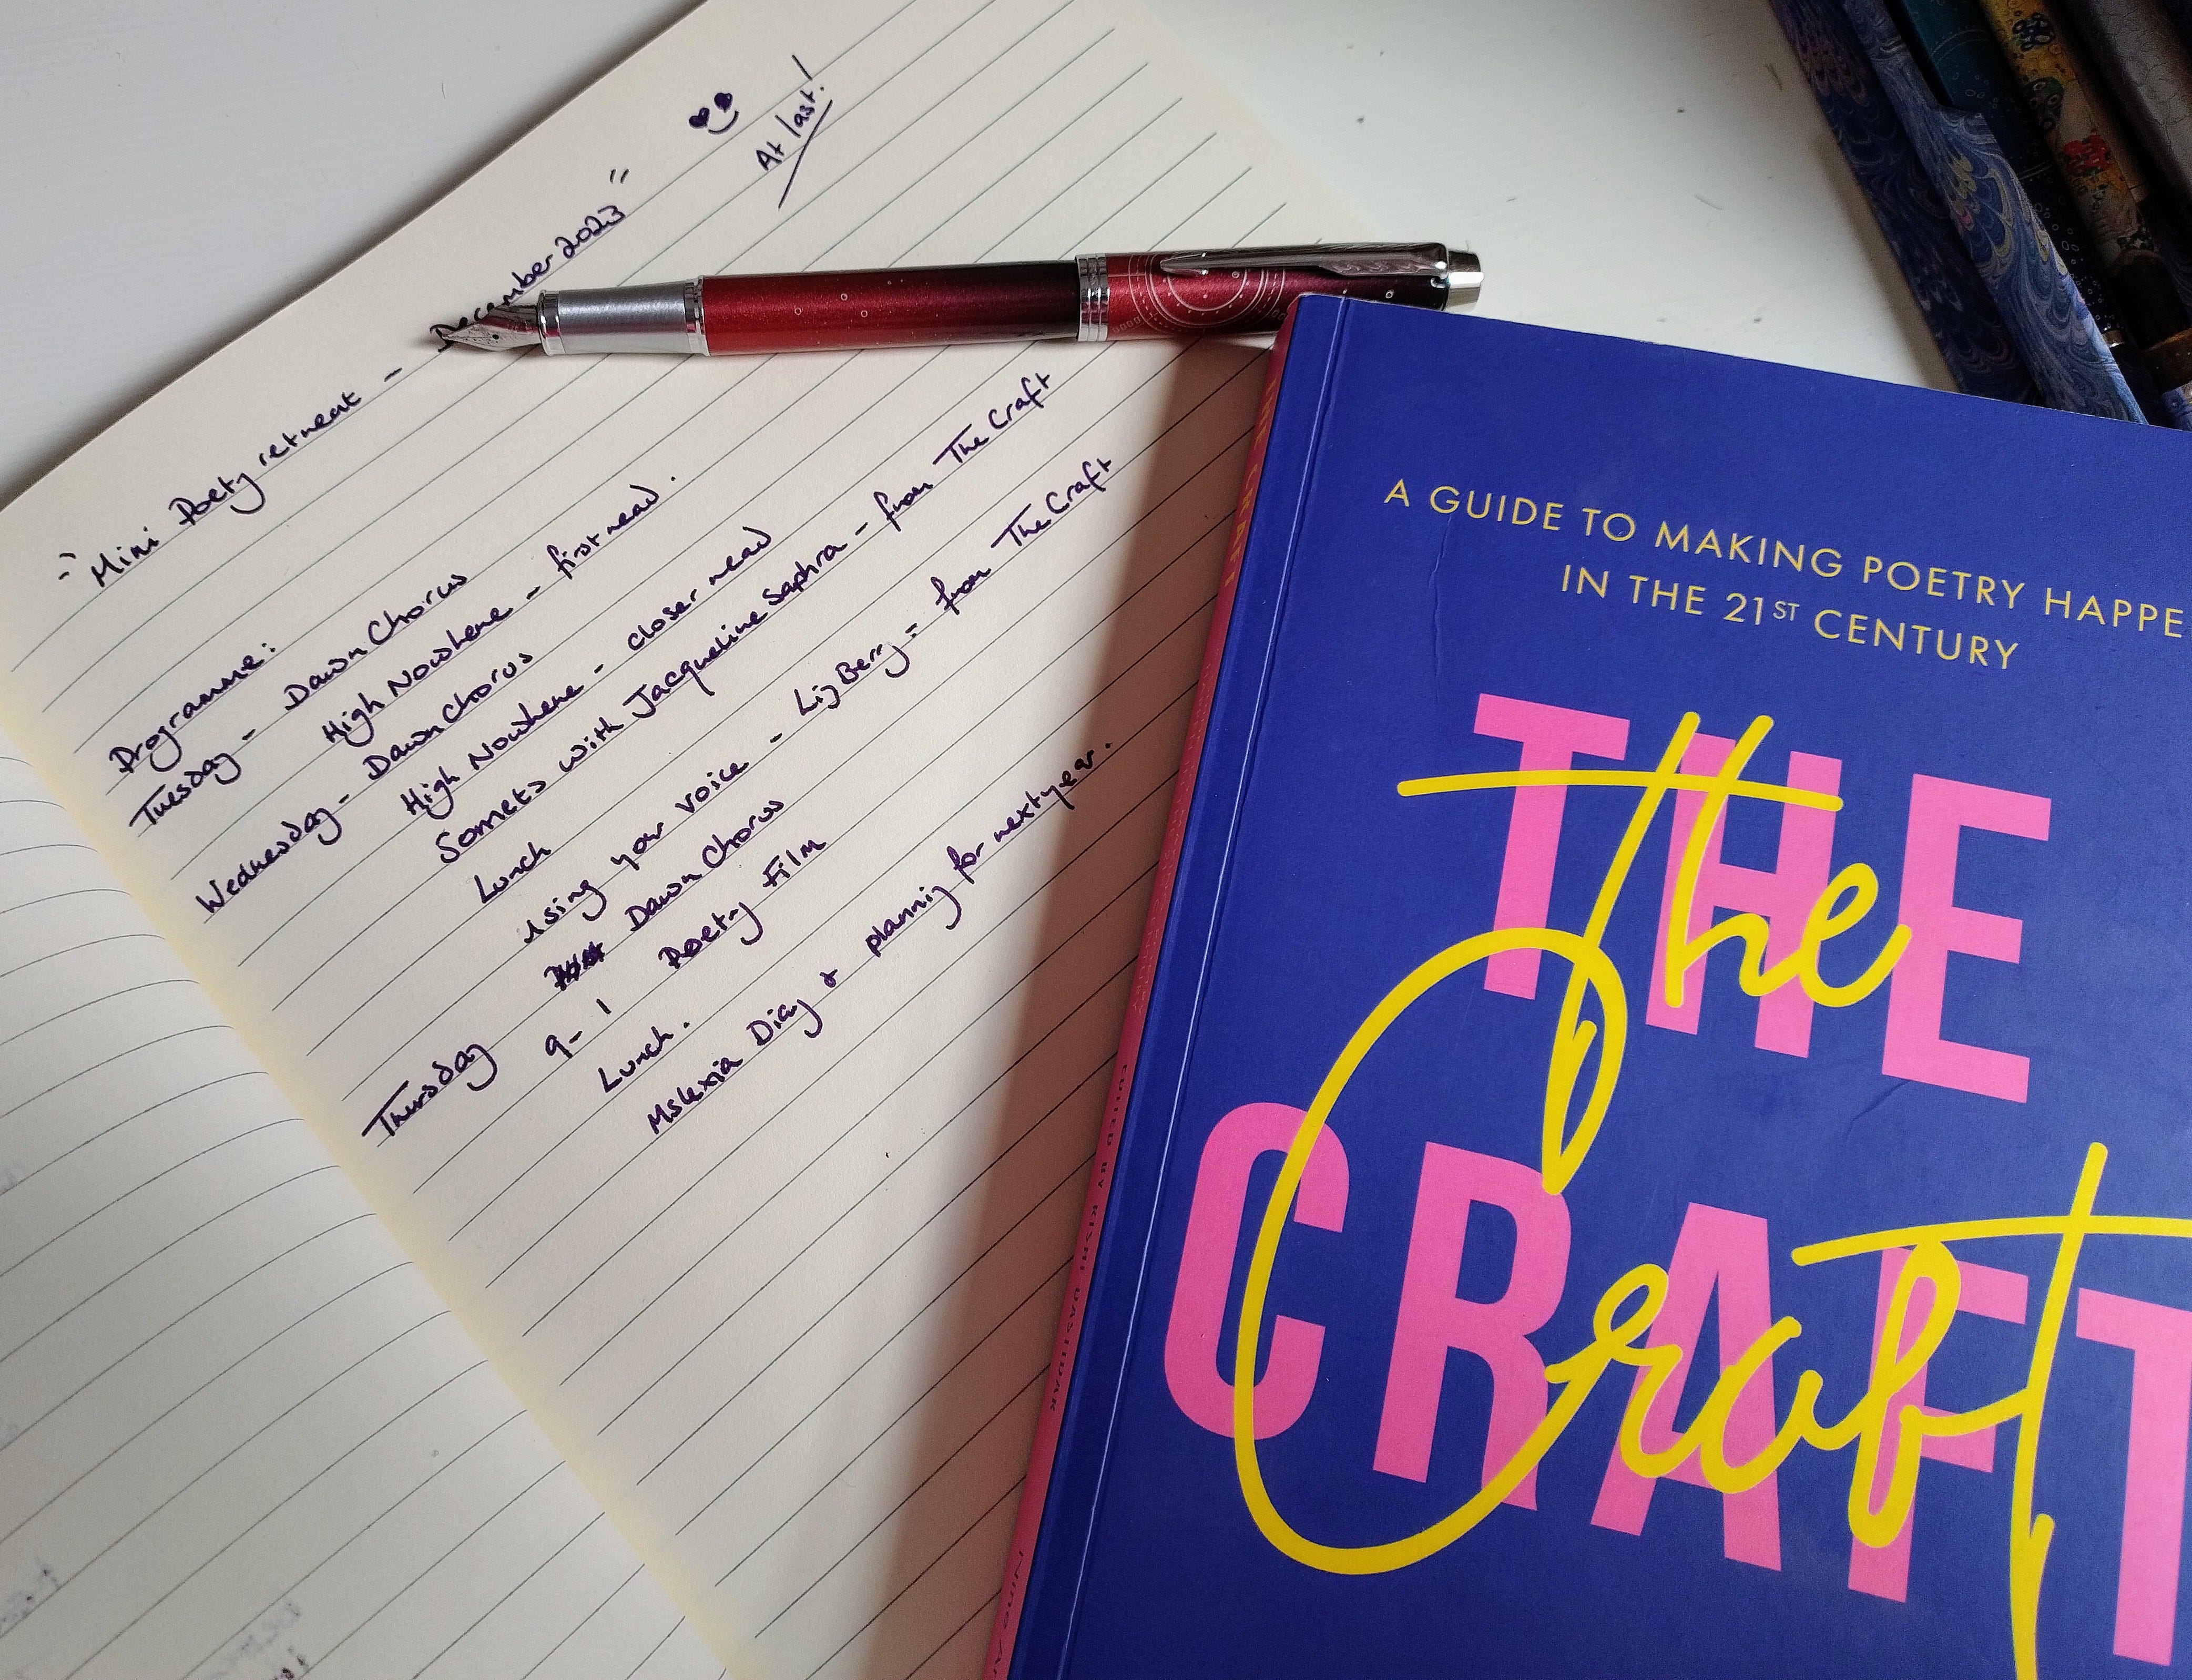 "Mini Poetry retreat - December 2023"
At last!
Programme:
Tuesday - Dawn Chorus
High Nowhere - first read.
Wednesday - Dawn Chorus
High Nowhere - closer read
Sonnets with Jacqueline Saphra - from The Craft
Lunch
Using your voice - Liz Berry - from The Craft
Dawn Chorus
Thursday 9-1 Poetry Film
Lunch.
Mslexia Diary & planning for next year.
A GUIDE TO MAKING POETRY HAPPE
IN THE 21ST CENTURY
THE
The
CRAFT
Craft
THE CRAFT
EDITED BY RISHI DASTIDAR